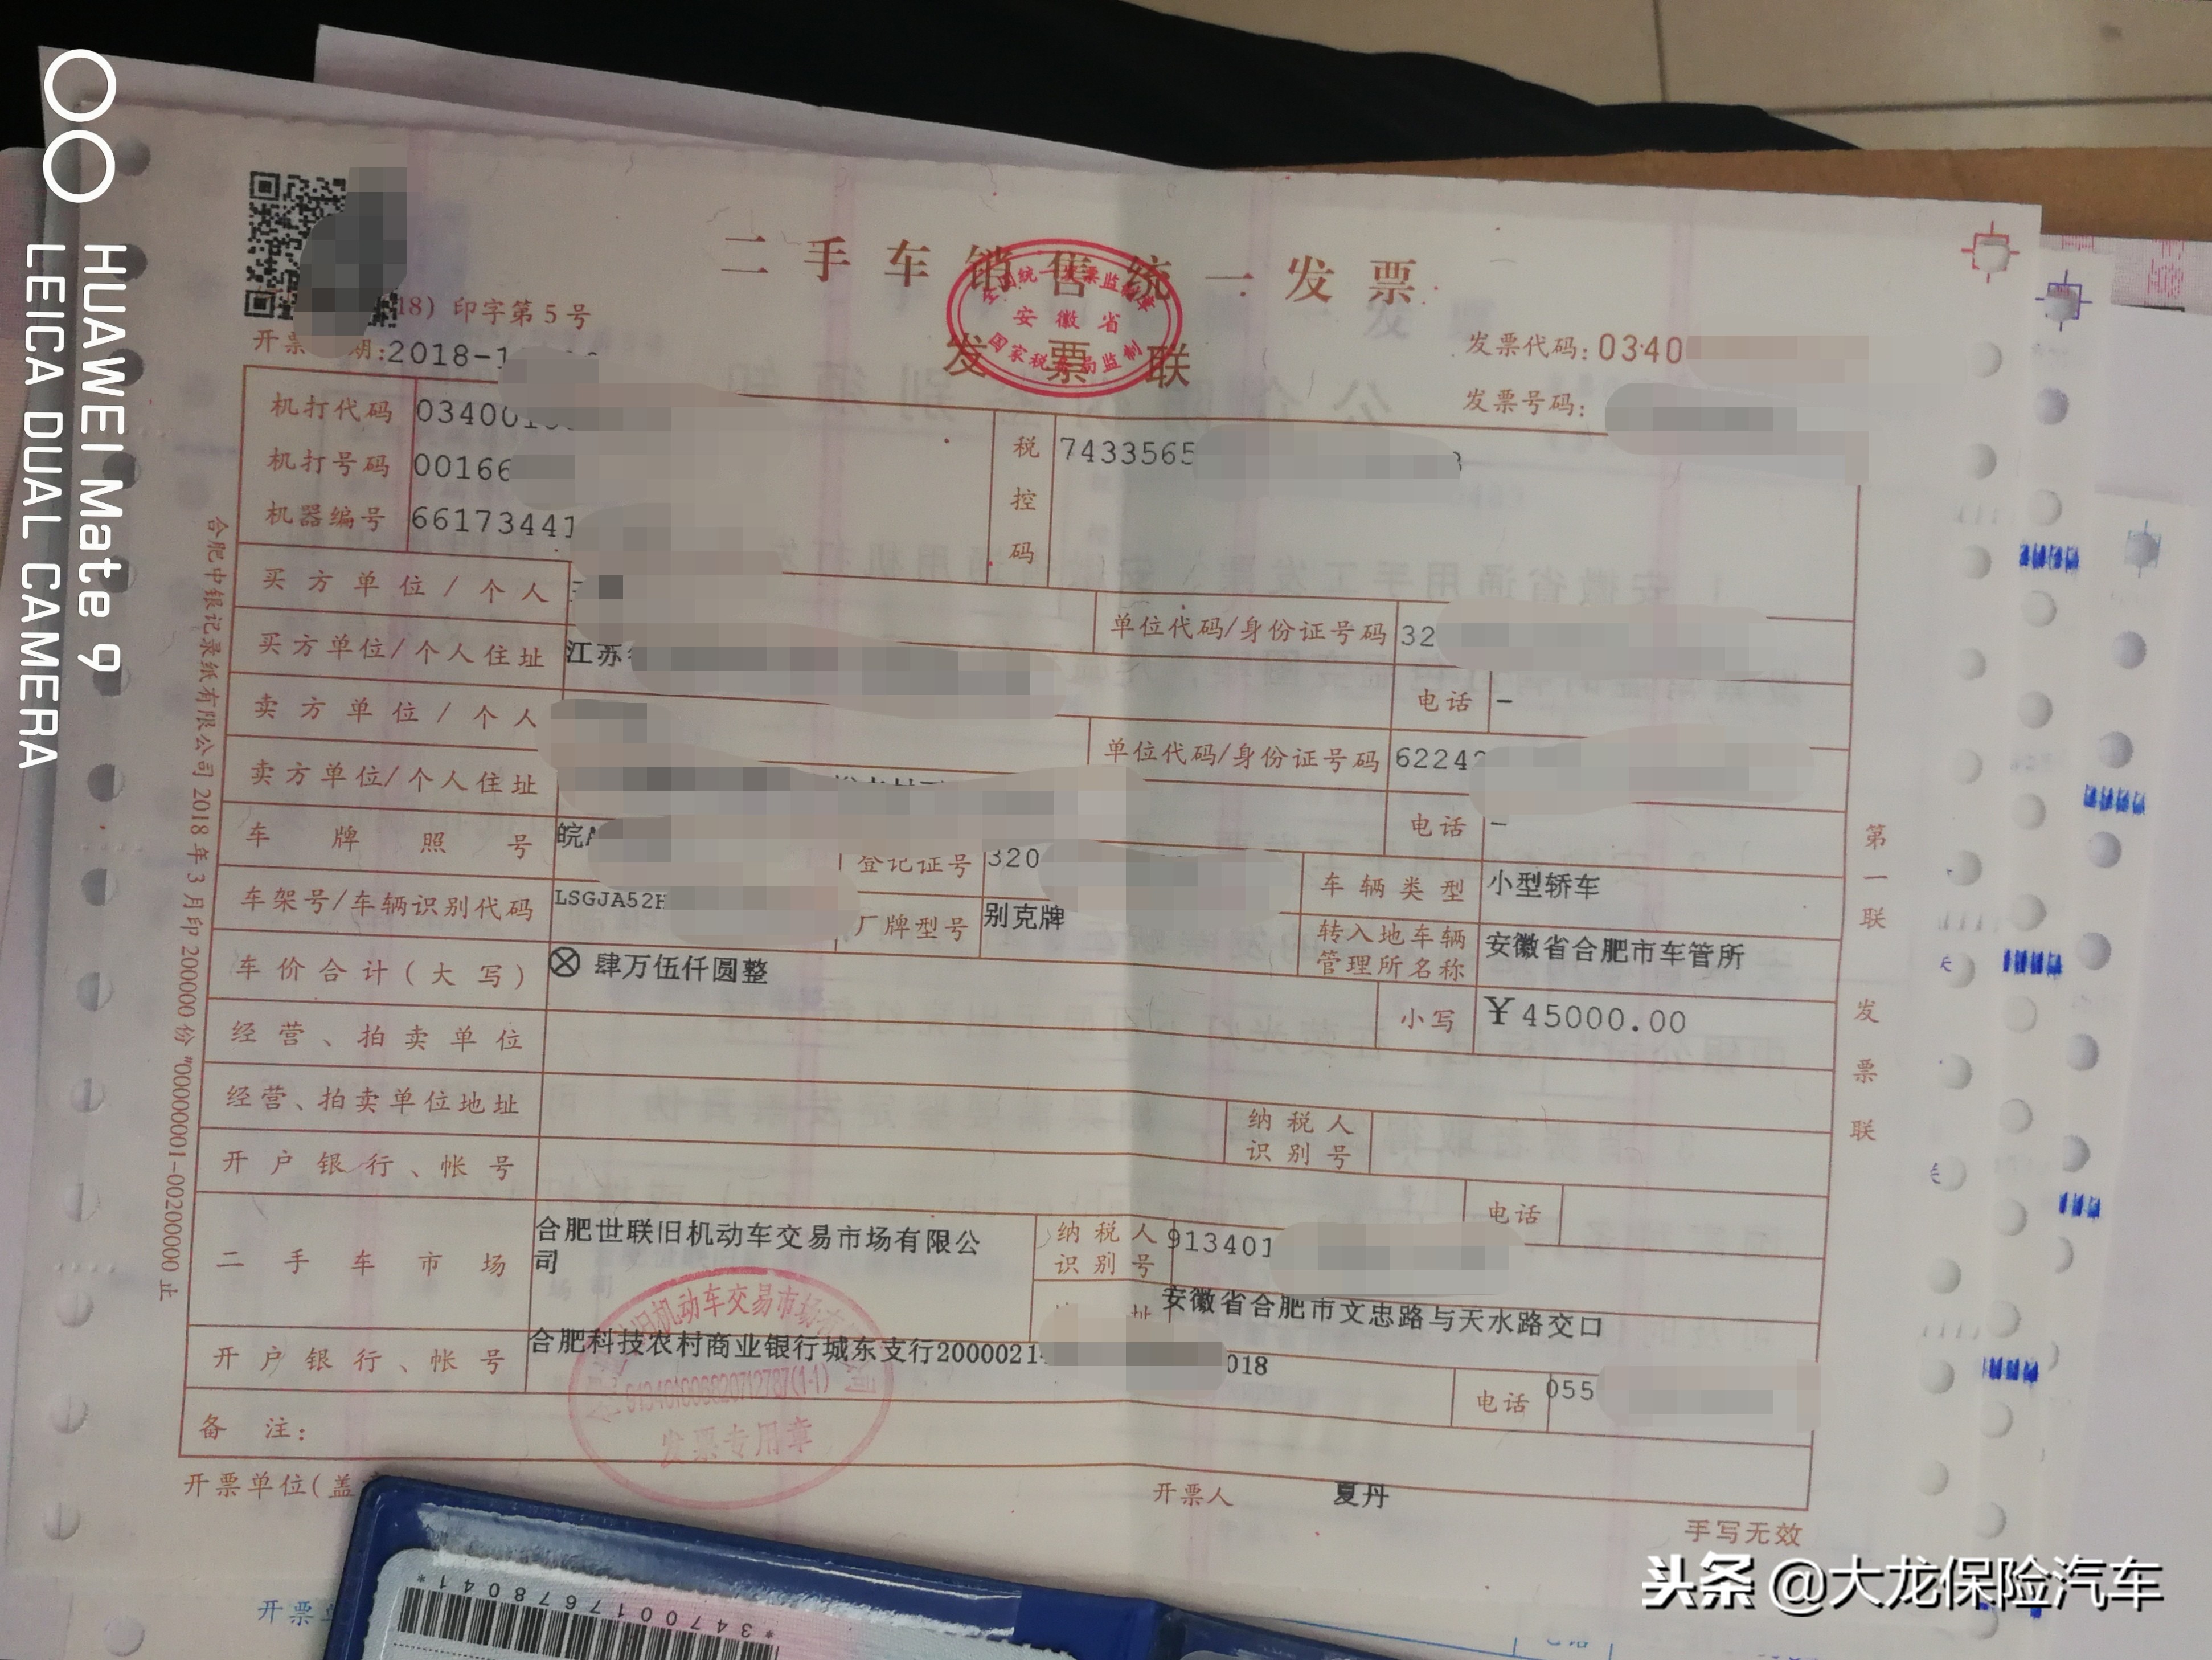 HUAWEI Mate 9
LEICA DUAL CAMERA
二手车销售统一发票
全国统一发票监制章
安徽省
国家税务局监制
发票联
18) 印字第5号
开票 期:2018-1
发票代码:0340
发票号码:
机打代码 03400
机打号码 00166
机器编号 66173441
税控码 7433565
买方单位/个人
单位代码/身份证号码 32
买方单位/个人住址 江苏
电话 -
卖方单位/个人
单位代码/身份证号码 6224
卖方单位/个人住址
电话 -
车牌照号 皖A
登记证号 320
车辆类型 小型轿车
车架号/车辆识别代码 LSGJA52H
厂牌型号 别克牌
转入地车辆管理所名称 安徽省合肥市车管所
车价合计(大写) ⊗ 肆万伍仟圆整
小写 ¥45000.00
经营、拍卖单位
经营、拍卖单位地址
纳税人识别号
开户银行、帐号
电话
二手车市场 合肥世联旧机动车交易市场有限公司
纳税人识别号 913401
址 安徽省合肥市文忠路与天水路交口
开户银行、帐号 合肥科技农村商业银行城东支行2000021 018
电话 055
旧机动车交易市场有
发票专用章
备注:
开票单位(盖
开票人 夏丹
手写无效
第一联 发票联
合肥中银记录纸有限公司2018年3月印200000份"00000001-00200000止
*3470017678041*
开票单
头条 @大龙保险汽车